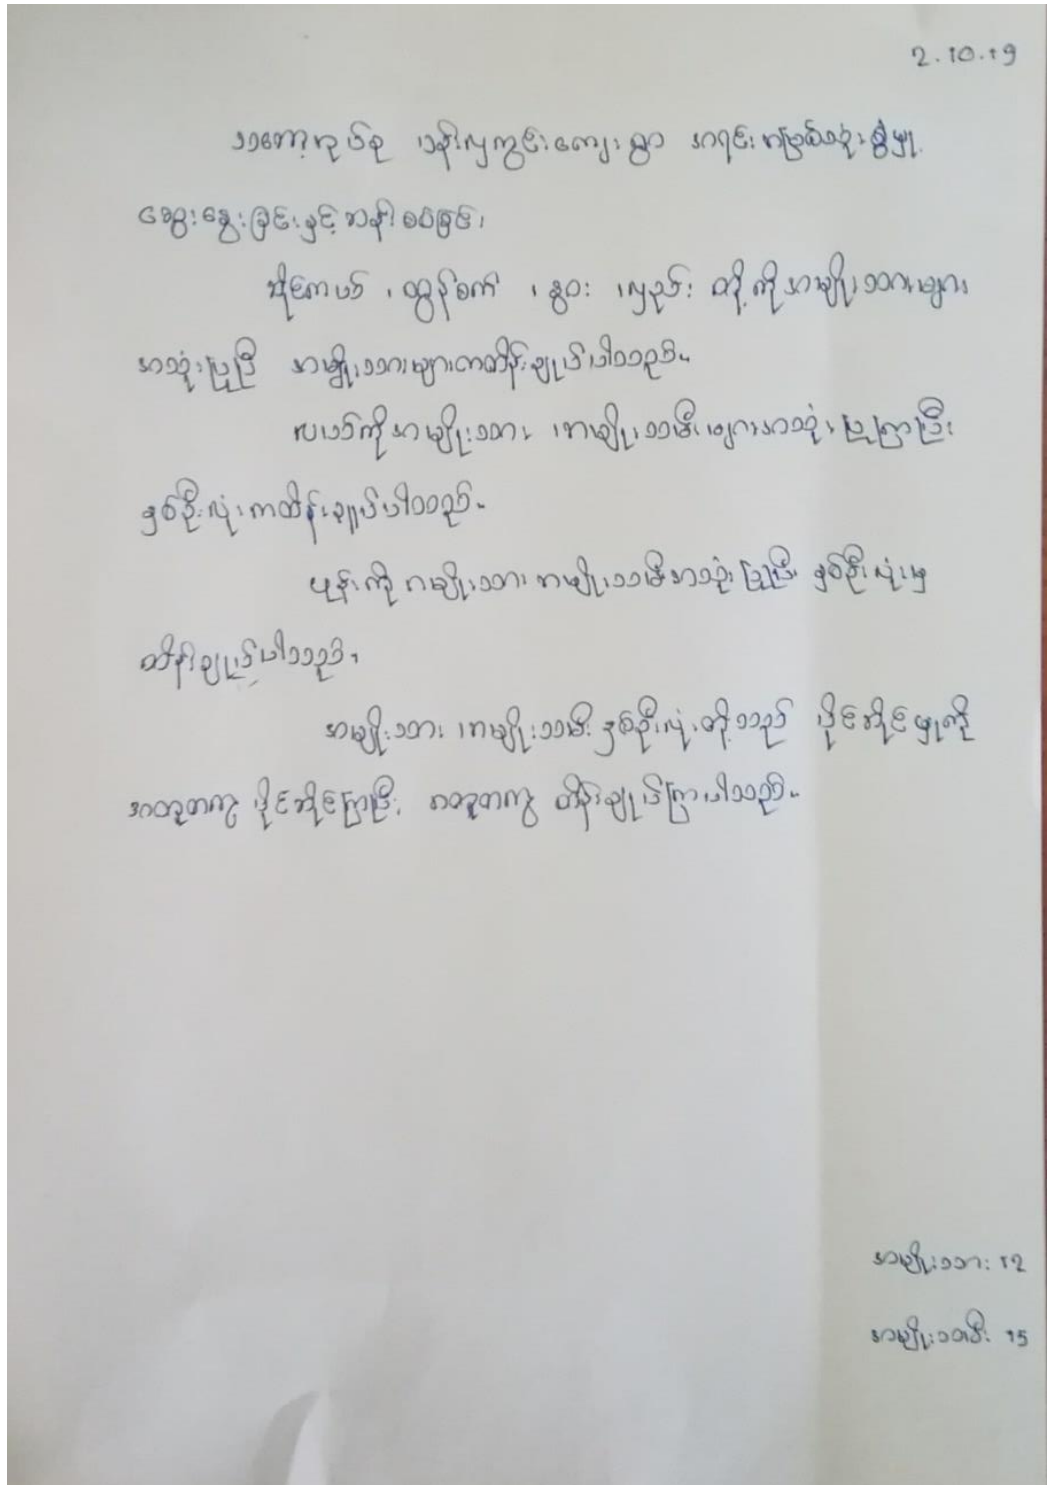 2.10.19
ပန်းလှကွင်းကျေးရွာ အရင်းအမြစ်သုံးစွဲမှု
ဆွေးနွေးခြင်းနှင့်ဆန်းစစ်ခြင်း
ဆိုင်ကယ် ၊ ထွန်စက် ၊ နွား ၊ လှည်း တို့ကိုအမျိုးသားများ
အသုံးပြုပြီး အမျိုးသားများကထိန်းချုပ်ပါသည်။
လယ်ကိုအမျိုးသား ၊ အမျိုးသမီးများအသုံးပြုကြပြီး
နှစ်ဦးလုံးကထိန်းချုပ်ပါသည်။
ဖုန်းကို အမျိုးသား အမျိုးသမီးအသုံးပြုပြီး နှစ်ဦးလုံးမှ
ထိန်းချုပ်ပါသည်။
အမျိုးသား ၊ အမျိုးသမီး နှစ်ဦးလုံးတို့သည် ပိုင်ဆိုင်မှုကို
အတူတကွ ပိုင်ဆိုင်ကြပြီး အတူတကွ ထိန်းချုပ်ကြပါသည်။
အမျိုးသား 12
အမျိုးသမီး 15